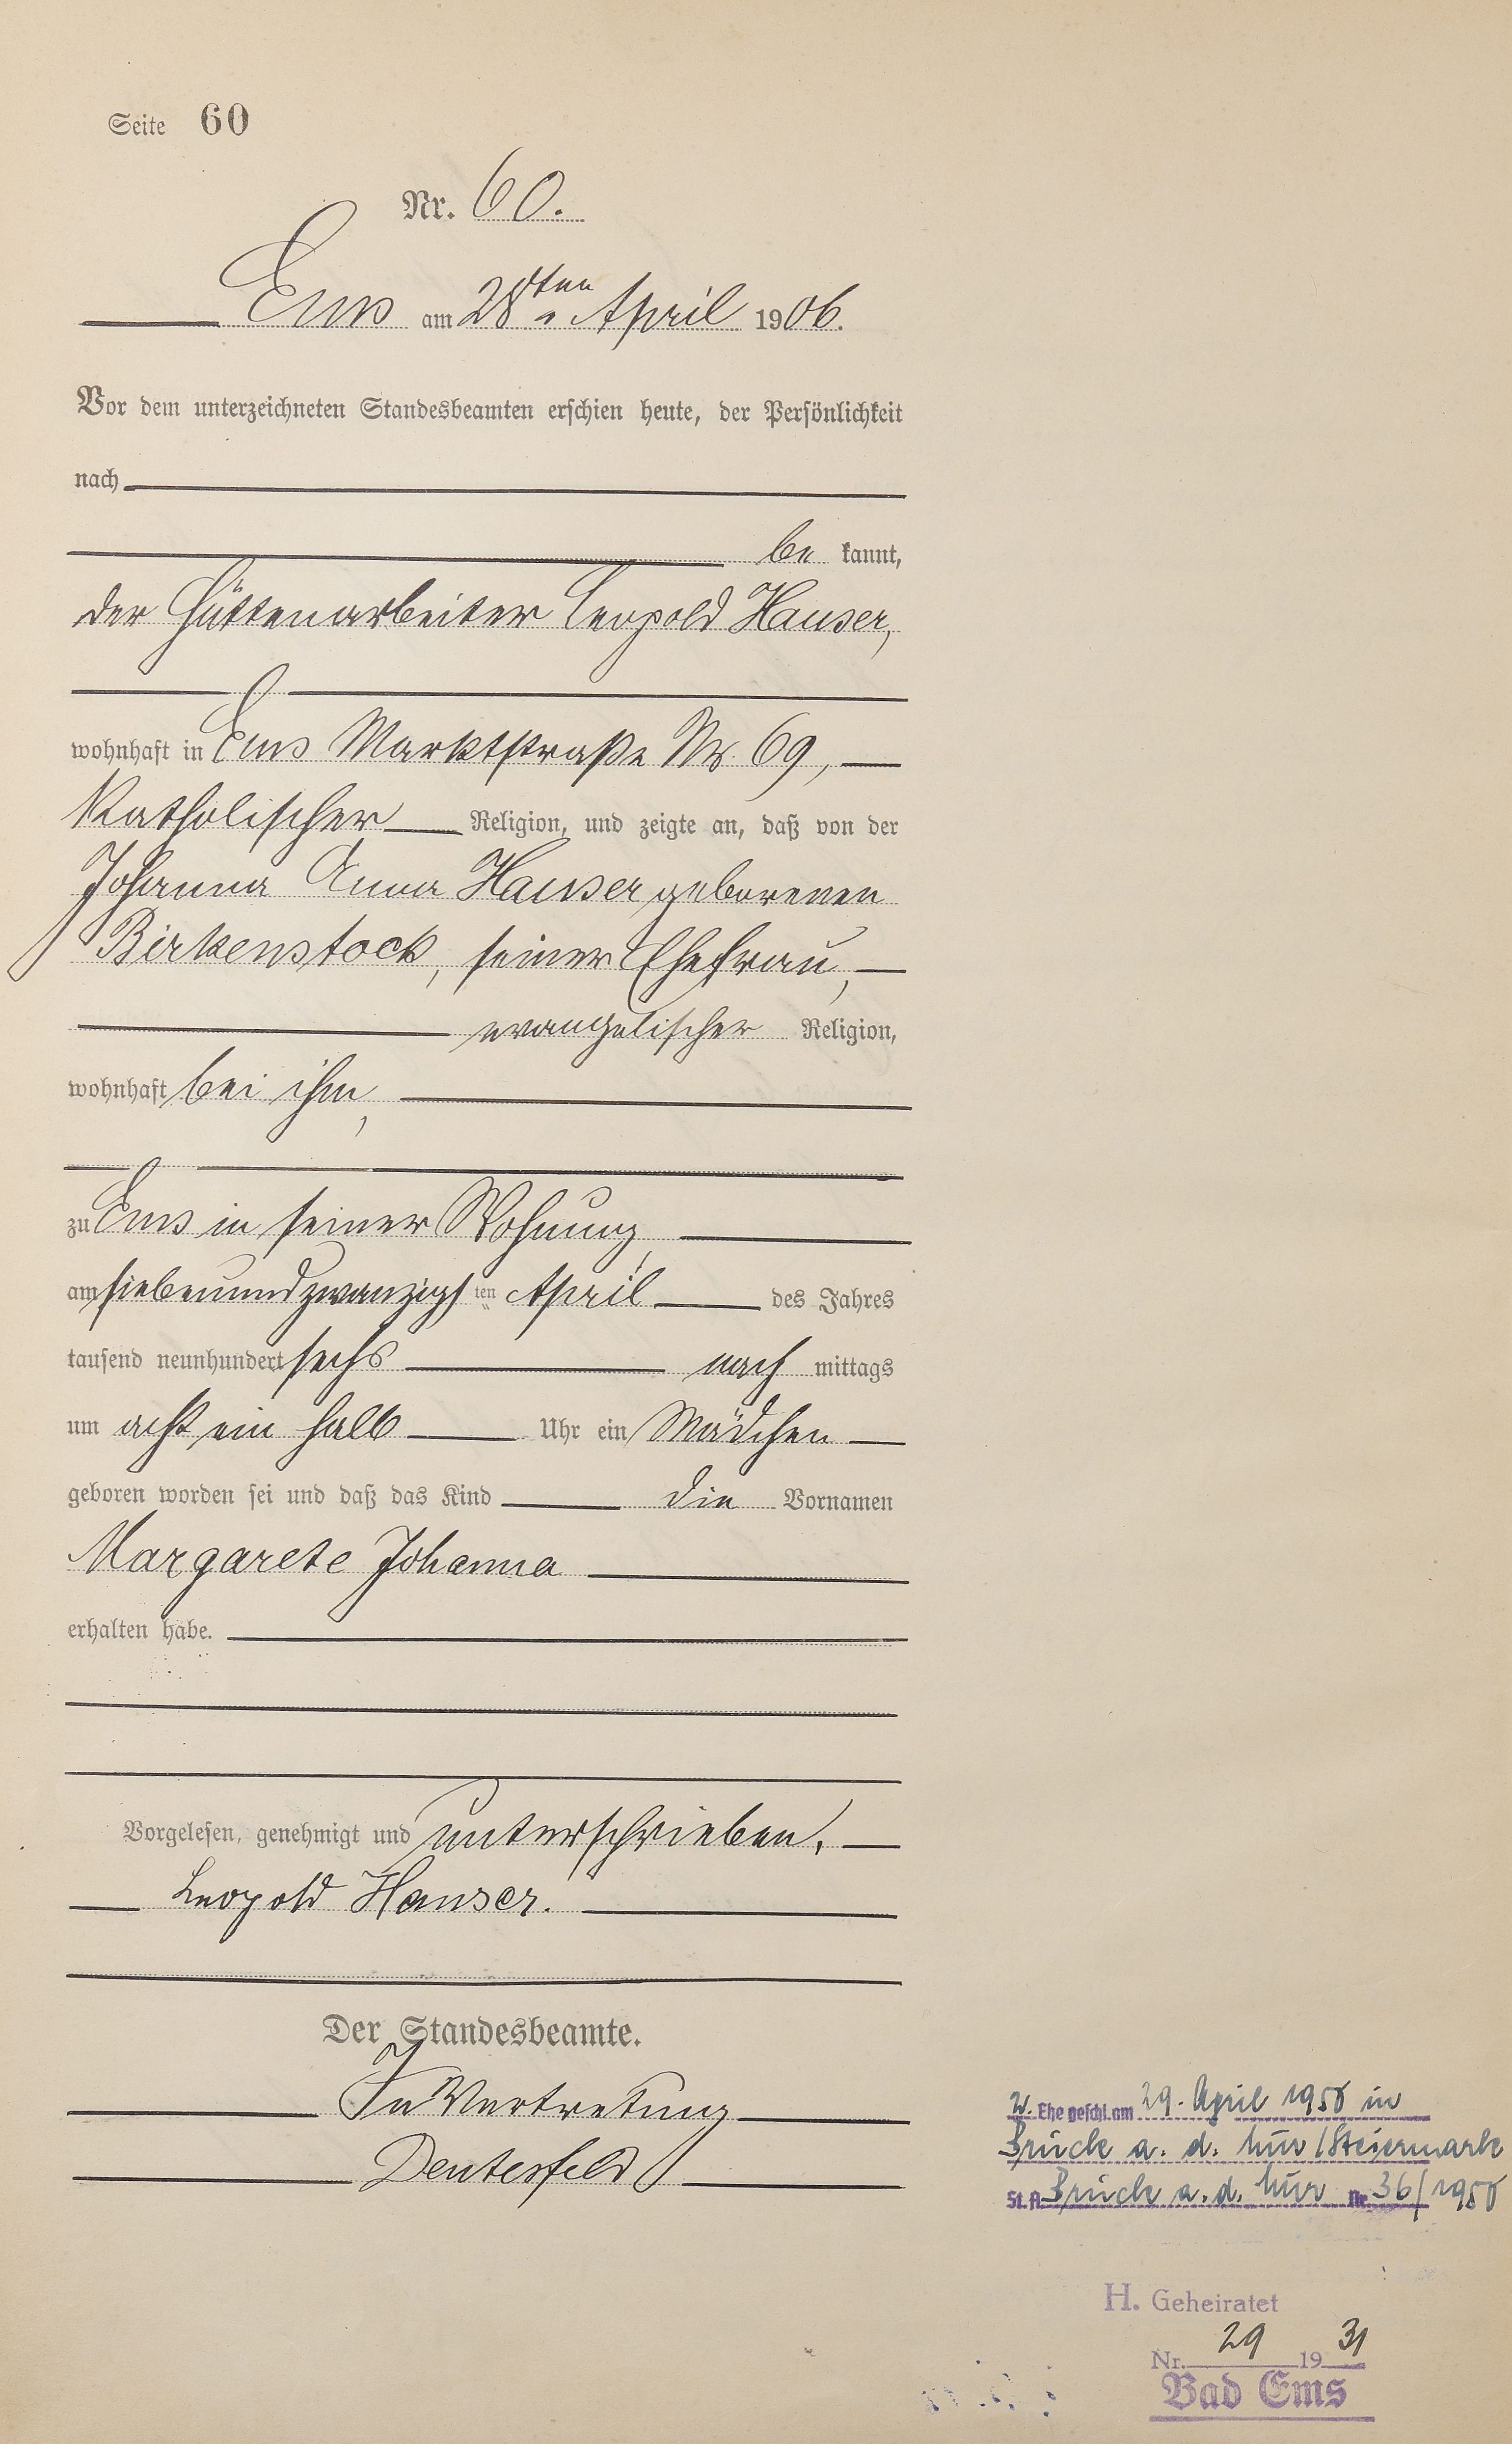 Seite 60
Nr. 60.
Ems am 28ten April 1906.
Vor dem unterzeichneten Standesbeamten erschien heute, der Persönlichkeit
nach
be kannt,
der Hüttenarbeiter Leopold Hauser,
wohnhaft in Ems Marktstraße Nr. 69,
katholischer Religion, und zeigte an, daß von der
Johanna Anna Hauser geborenen
Birkenstock, seiner Ehefrau,
evangelischer Religion,
wohnhaft bei ihm,
zu Ems in seiner Wohnung,
am siebenundzwanzigsten April des Jahres
tausend neunhundert sechs nach mittags
um acht ein halb Uhr ein Mädchen
geboren worden sei und daß das Kind die Vornamen
Margarete Johanna
erhalten habe.
Vorgelesen, genehmigt und unterschrieben.
Leopold Hauser.
Der Standesbeamte.
In Vertretung
2. Ehe geschl. am 29. April 1950 in
Bruck a. d. Mur/Steiermark
St. A. Bruck a. d. Mur Nr. 36/1950
H. Geheiratet
Nr. 29 1931
Bad Ems